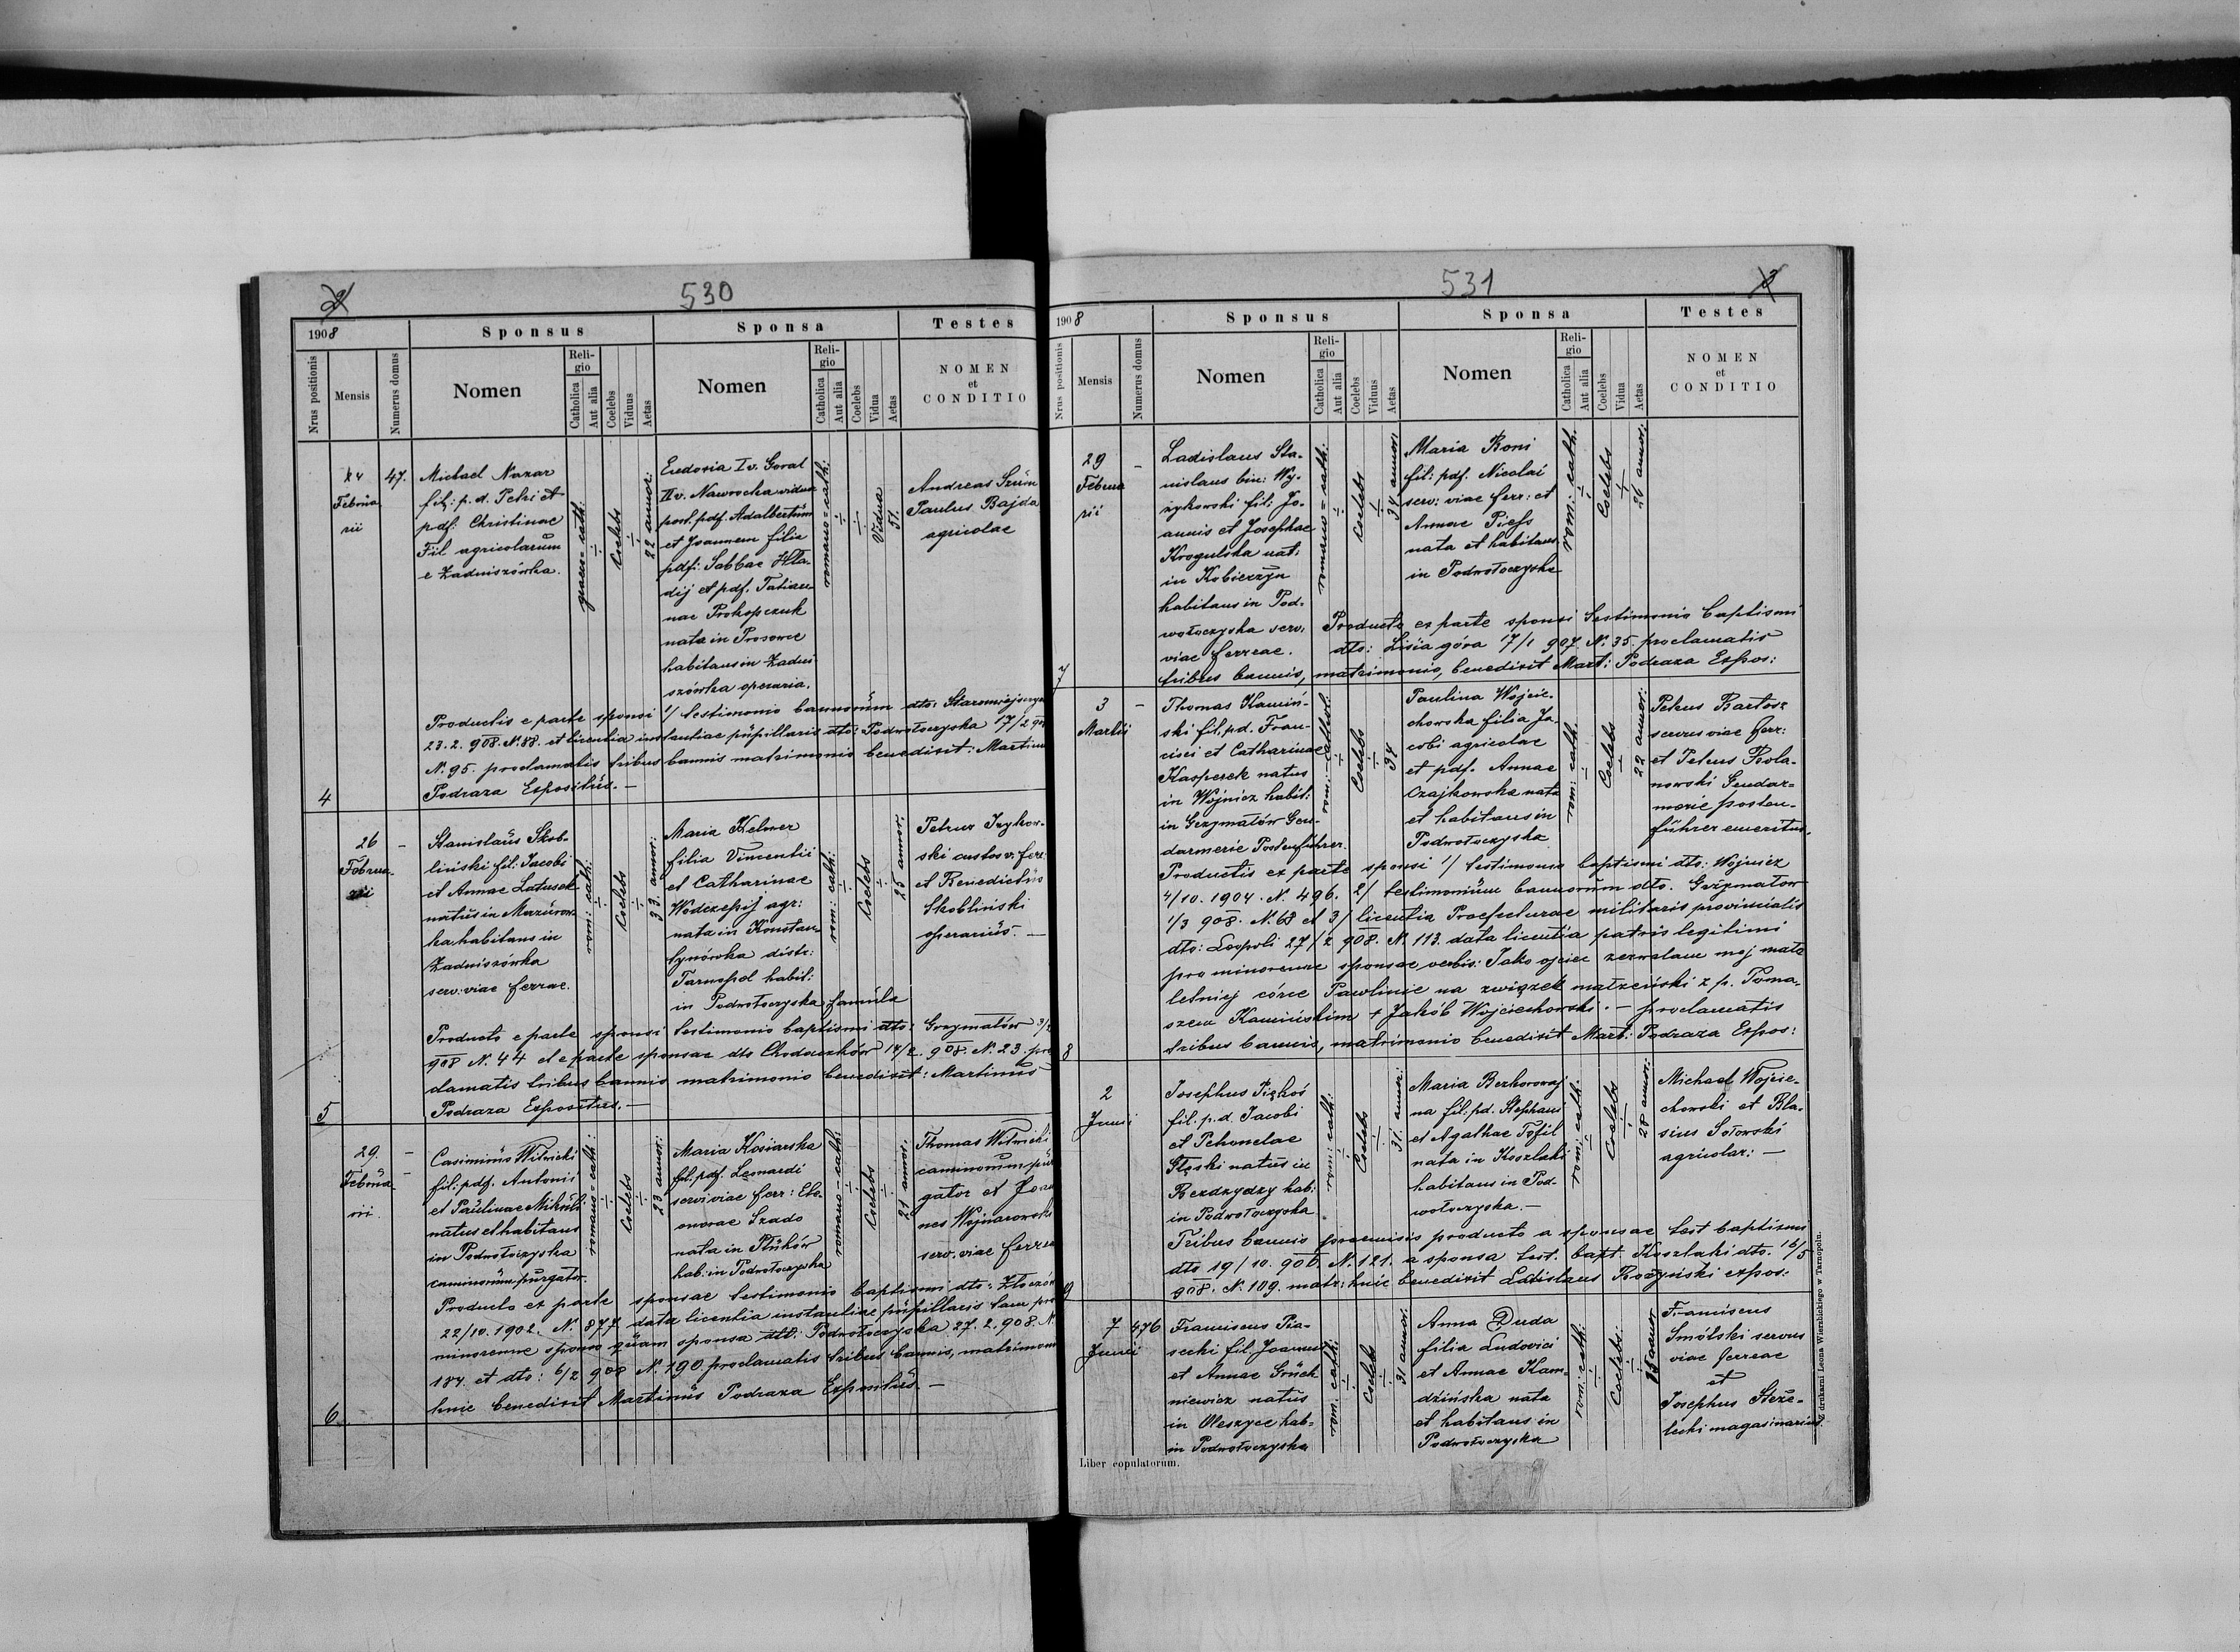 2
530
1908
Sponsus
Sponsa
Testes
Nrus positionis
Mensis
Numerus domus
Nomen
Religio
Catholica
Aut alia
Coelebs
Viduus
Aetas
Nomen
Religio
Catholica
Aut alia
Coelebs
Vidua
Aetas
NOMEN
et
CONDITIO
4
24
Februa
rii
47.
Michael Nazar
fil: p. d. Petri et
pdf: Christinae
Fil agricolarum
e Zadniszówka.
graeco-cath:
Coelebs
22 annor:
Eudoxia I v. Goral
II v. Nawrocka vidua
post. pdf. Adalbertum
et Joannem filia
pdf: Sabbae Hła-
dij et pdf. Tatian-
nae Prokopczuk
nata in Prosowce
habitans in Zadni
szówka operaria.
romano-cath:
Vidua
51.
Andreas Szum
Paulus Bajda
agricolae
Productis e parte sponsi 1/ testimonio bannorum dto:
23.2.908. N. 88. et licentia instantiae pupillaris dto: Podwołoczyska 17/2 908
N. 95. proclamatis tribus bannis matrimonio benedixit: Martinus
Podraza Expositus. —
5
26
Februa-
rii
-
Stanislaus Skob-
liński fil: Jacobi
et Annae Latusek
natus in Mazurow-
ka habitans in
Zadniszówka
serv: viae ferrae.
rom: cath:
Coelebs
33 annor:
Maria Helmer
filia Vincentii
et Catharinae
agr:
nata in Konstan-
tynówka distr:
Tarnopol habit:
in Podwołoczyska famula
rom: cath:
Coelebs
25 annor.
Petrus Izykow-
ski custos v: ferr:
et Benedictus
Skobliński
operarius. —
Producto e parte sponsi testimonio baptismi dto: Grzymałów 3/2
908 N. 44 et e parte sponsae dto Chodaczków 14/2. 908. N. 23. pro
clamatis tribus bannis matrimonio benedixit: Martinus
Podraza Expositus. —
6
29.
Februa
rii.
-
Casimirus Witwicki
fil: pdf. Antonii
et Paulinae Mikuli
natus et habitans
in Podwołoczyska
caminorum purgator.
romano-cath:
Coelebs
23 annor:
Maria Kosiarska
fil: pdf. Leonardi
servi viae ferr: Ele-
onorae Szado
nata in Płuhów
hab: in Podwołoczyska
romano-cath:
Coelebs
21 annor.
Thomas Witwicki
caminorum pur
gator et Joan
nes Wojnarowski
serv. viae ferrea
Producto ex parte sponsae testimonio baptismi dto: Złoczów
22/10. 1902. N. 877 data licentia instantiae pupillaris tam pro
minorenne sponso quam sponsa dto: Podwołoczyska 27.2.908. N
184. et dto: 6/2 908 N. 190. proclamatis tribus bannis, matrimon
huic benedixit Martinus Podraza Expositus —
531
3
1908
Sponsus
Sponsa
Testes
Nrus positionis
Mensis
Numerus domus
Nomen
Religio
Catholica
Aut alia
Coelebs
Viduus
Aetas
Nomen
Religio
Catholica
Aut alia
Coelebs
Vidua
Aetas
NOMEN
et
CONDITIO
7
29
Februa
rii
-
Ladislaus Sta-
nislaus bin: Wy-
żykowski fil: Jo-
annis et Josephae
Krogulska nat:
in Kobierzyn
habitans in Pod-
wołoczyska serv:
viae ferreae.
romano-cath:
Coelebs
34 annor:
Maria Boni
fil: pdf. Nicolai
serv: viae ferr: et
Annae Piess
nata et habitans
in Podwołoczyska
rom: cath.
Coelebs
26 annor:
Producto ex parte sponsi testimonio baptismi
dto: Lisia góra 17/1 907. N. 35. proclamatis
tribus bannis, matrimonio, benedixit Mart: Podraza Expos:
8
3
Martii
-
Thomas Kamiń-
ski fil. pd. Fran-
cisci et Catharinae
Kasperek natus
in Wojnicz habit:
in Grzymałów Gen-
darmerie Postenführer.
rom: cathol:
Coelebs
34
Paulina Wojcie-
chowska filia Ja-
cobi agricolae
et pdf. Annae
Czajkowska nata
et habitans in
Podwołoczyska
rom: cath.
Coelebs
22 annor:
Petrus Bartosz
servus viae ferr:
et Petrus Bola-
nowski Gendar-
merie posten-
führer emeritus.
Productis ex parte sponsi 1/ testimonio baptismi dto: Wojnicz
4/10. 1904. N. 496. 2/ testimonium bannorum dto. Grzymałow
1/3 908. N. 68 et 3/ licentia Praefecturae militaris provincialis
dto: Leopoli 27/2 908. N. 113. data licentia patris legitimi
pro minorenne sponsae verbis: Jako ojciec zezwalam mej mało
letniej córce Pawlinie na związek małżeński z p. Toma-
szem Kamińskim + Jakób Wojciechowski. — proclamatis
tribus bannis, matrimonio benedixit Mart: Podraza Expos:
9
2
Junii
Josephus Piękoś
fil. p. d. Jacobi
et Petronelae
Stęski natus in
Bezdzydzy hab:
in Podwołoczyska
rom: cath:
Coelebs
31. annor:
Maria Bezkorowaj
na fil. pd. Stephani
et Agathae Tofil
nata in Koszlaki
habitans in Pod-
wołoczyska. —
rom: cath.
Coelebs
28 annor:
Michael Wojcie-
chowski et Bla-
sius Sołowski
agricolar: —
Tribus bannis praemissis producto a sponsae test baptismi
dto 19/10. 906. N. 121. a sponsa test. bapt. Koszlaki dto. 16/5
908. N. 109. matr: huic benedixit Ladislaus Rożyński expos:
7
Junii
476
Franciscus Pia-
secki fil. Joannis
et Annae Gruch
niewicz natus
in Oleszyce hab=
in Podwołoczyska
rom. cath:
Coelebs
31 annor.
Anna Duda
filia Ludovici
et Annae Kam-
dzińska nata
et habitans in
Podwołoczyska
rom: cath:
Coelebs:
annor
Franciscus
Smólski servus
viae ferreae
et
Josephus Steże-
lecki magasinarius.
Liber copulatorum.
Z drukarni Leona Wierzbickiego w Tarnopolu.